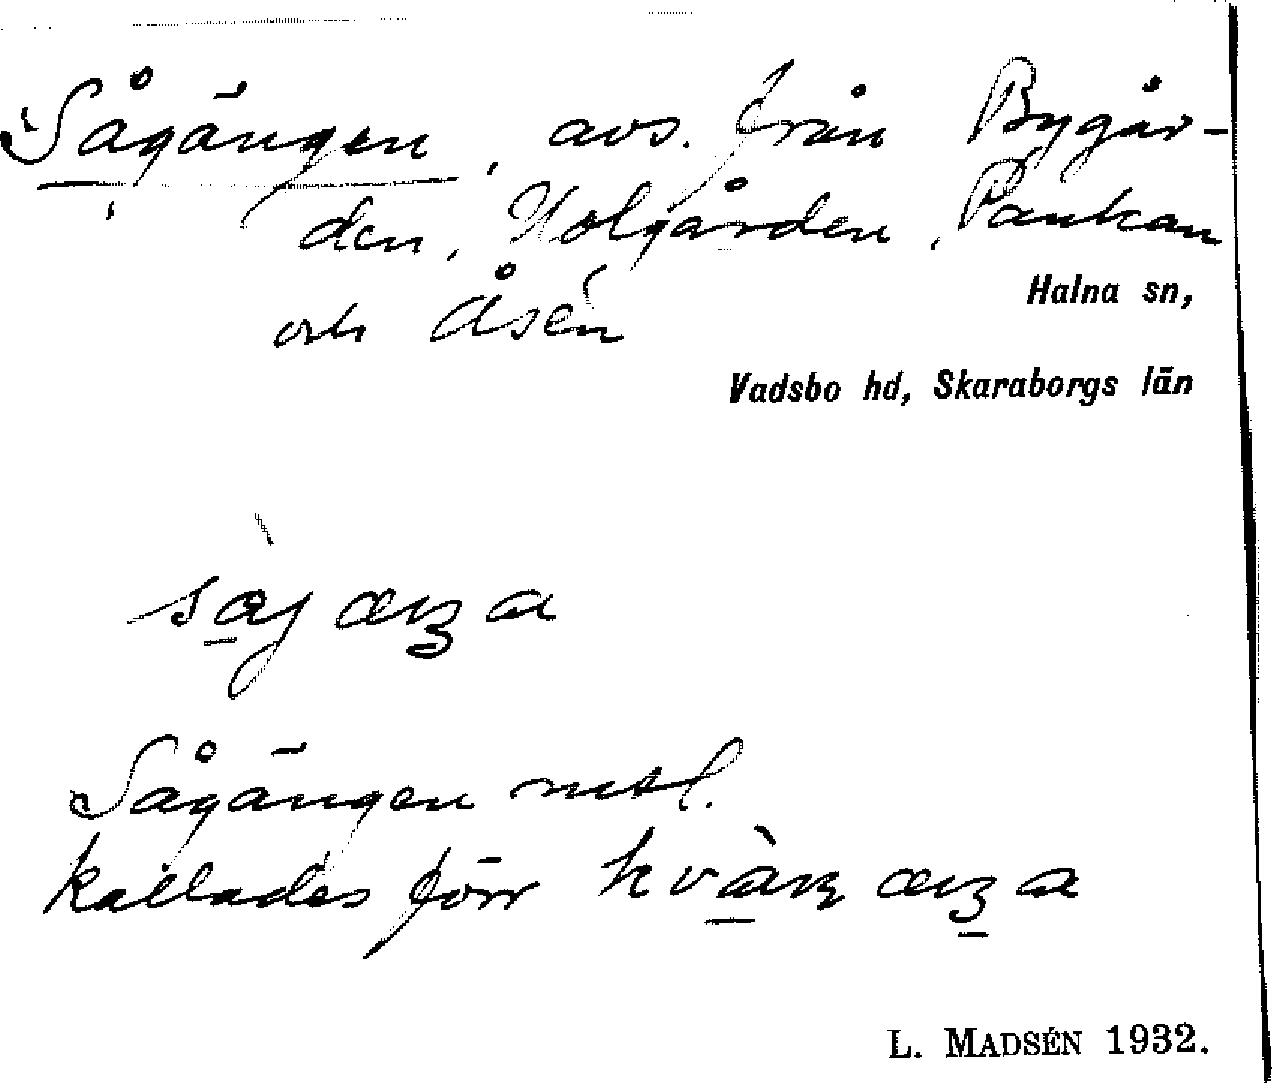 Sågängen, avs. från Bygår-
den, Holgården, Pankan
och Åsén
Halna sn,
Vadsbo hd, Skaraborgs län
Sågängen
kallades förr
L. MADSÉN 1932.